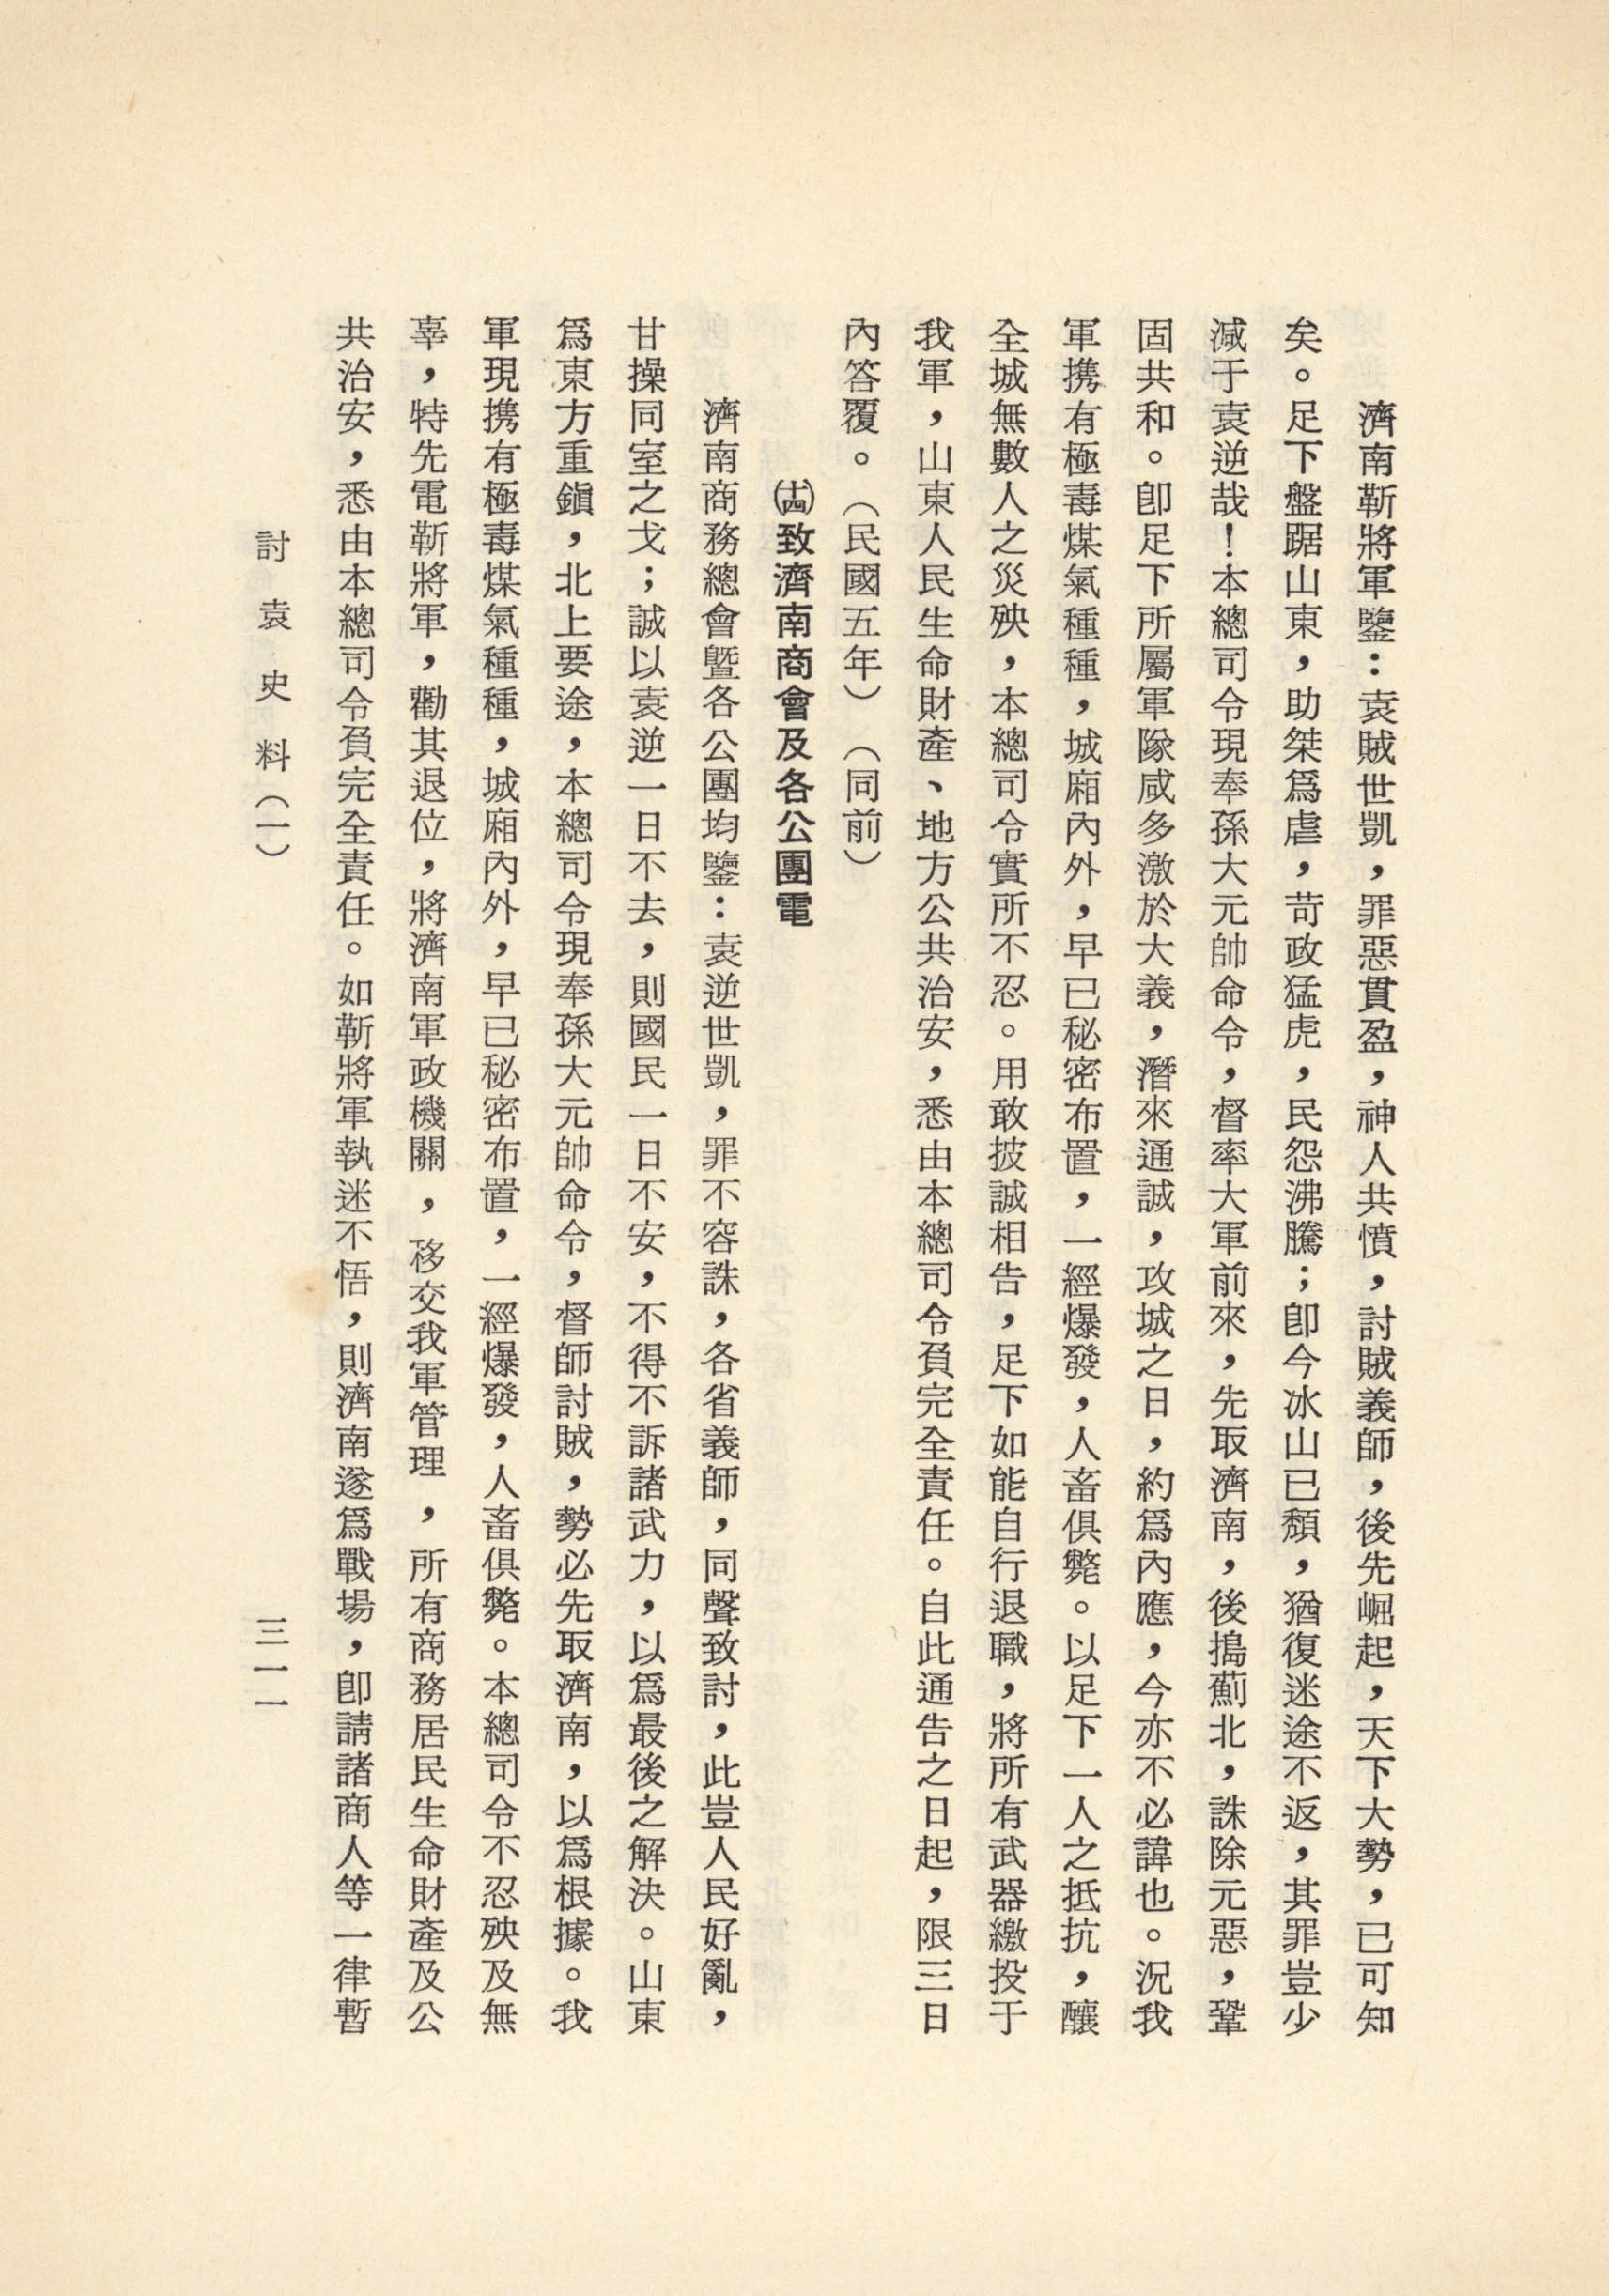 濟南靳將軍鑒：袁賊世凱，罪惡貫盈，神人共憤，討賊義師，後先崛起，天下大勢，已可知
矣。足下盤踞山東，助桀爲虐，苛政猛虎，民怨沸騰；卽今冰山已頹，猶復迷途不返，其罪豈少
減于袁逆哉！本總司令現奉孫大元帥命令，督率大軍前來，先取濟南，後搗薊北，誅除元惡，鞏
固共和。卽足下所屬軍隊咸多激於大義，潛來通誠，攻城之日，約爲內應，今亦不必諱也。況我
軍携有極毒煤氣種種，城廂內外，早已秘密布置，一經爆發，人畜俱斃。以足下一人之抵抗，釀
全城無數人之災殃，本總司令實所不忍。用敢披誠相告，足下如能自行退職，將所有武器繳投于
我軍，山東人民生命財產、地方公共治安，悉由本總司令負完全責任。自此通告之日起，限三日
內答覆。（民國五年）（同前）
㈩㈣致濟南商會及各公團電
濟南商務總會曁各公團均鑒：袁逆世凱，罪不容誅，各省義師，同聲致討，此豈人民好亂，
甘操同室之戈；誠以袁逆一日不去，則國民一日不安，不得不訴諸武力，以爲最後之解決。山東
爲東方重鎭，北上要途，本總司令現奉孫大元帥命令，督師討賊，勢必先取濟南，以爲根據。我
軍現携有極毒煤氣種種，城廂內外，早已秘密布置，一經爆發，人畜俱斃。本總司令不忍殃及無
辜，特先電靳將軍，勸其退位，將濟南軍政機關，移交我軍管理，所有商務居民生命財產及公
共治安，悉由本總司令負完全責任。如靳將軍執迷不悟，則濟南遂爲戰場，卽請諸商人等一律暫
討袁史料（一）
三一一